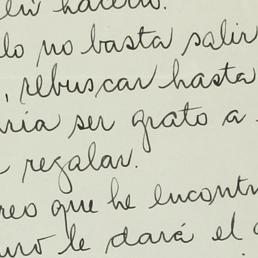 en hacerlo.
lo no basta salir
, rebuscar hasta
ria ser grato a
regalar.
reo que he encontr
uro le dará el